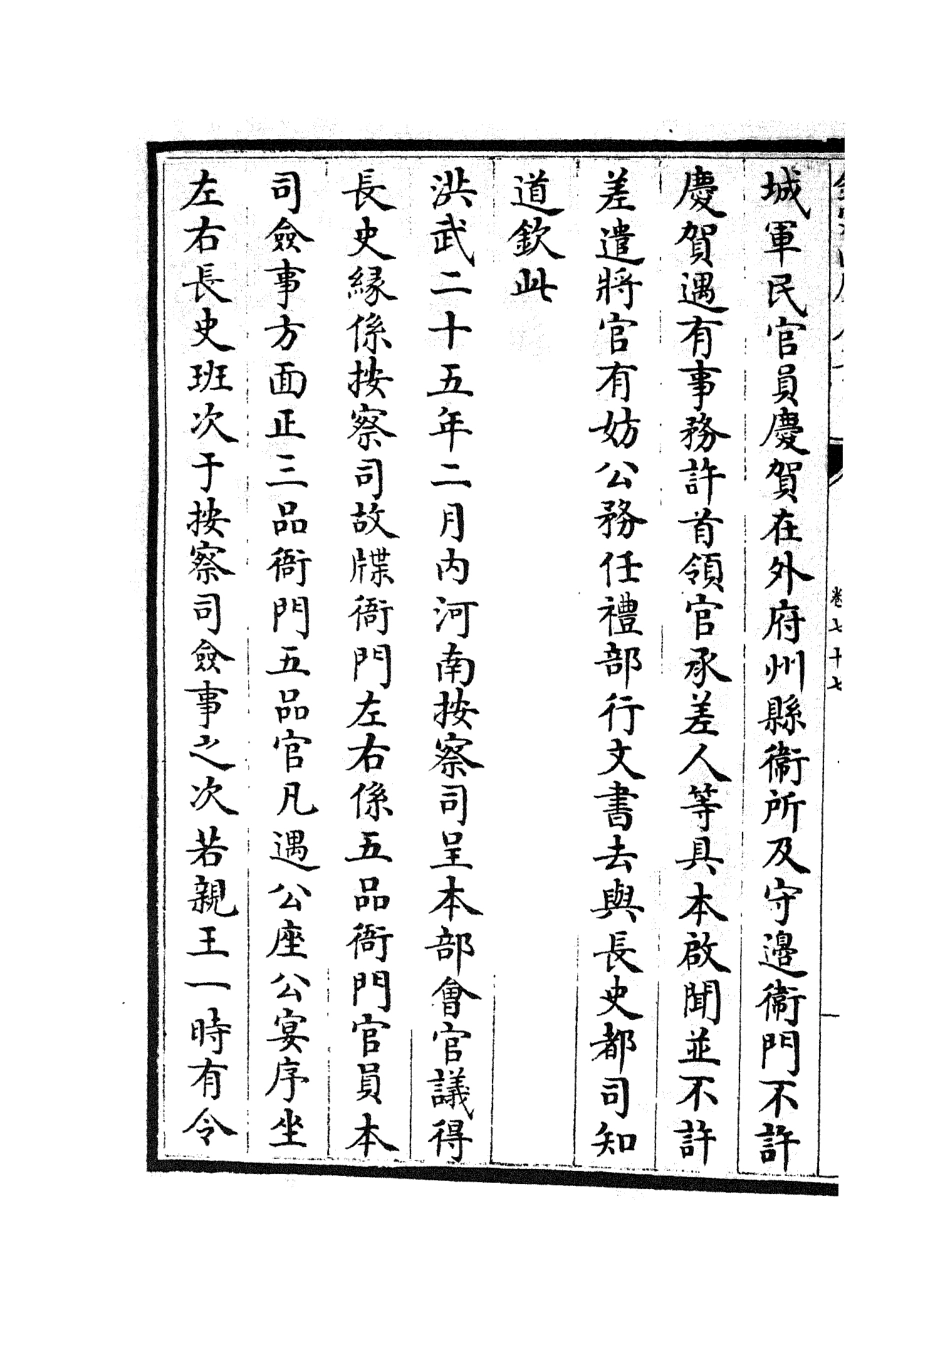 卷七十七
城軍民官員慶賀在外府州縣衛所及守邊衛門不許
慶賀遇有事務許首領官承差人等具本啟聞並不許
差遣將官有妨公務任禮部行文書去與長史都司知
道欽此
洪武二十五年二月內河南按察司呈本部會官議得
長史緣係按察司故牒衙門左右係五品衙門官員本
司僉事方面正三品衙門五品官凡遇公座公宴序坐
左右長史班次于按察司僉事之次若親王一時有令